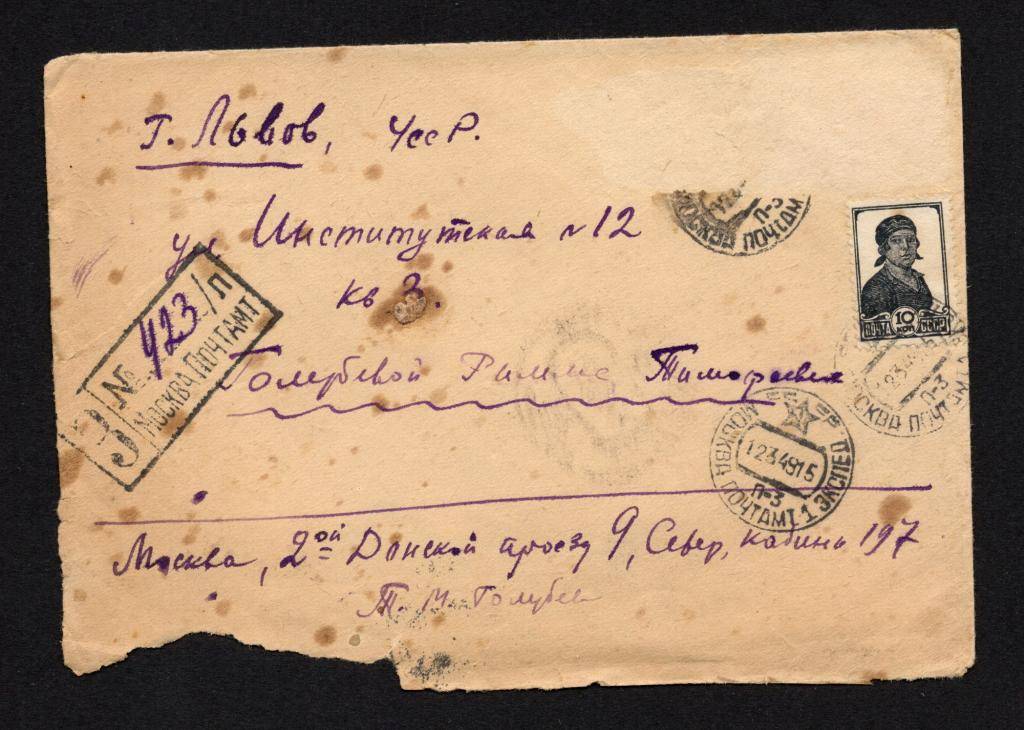 г. Львов, УССР.
ул Институтская №12
кв 3.
Голубевой Римме Тимофеевне
Москва, 2ой Донской проезд 9, Север, кабина 197
Т. М. Голубев
З № 423/п
МОСКВА ПОЧТАМТ
МОСКВА ПОЧТАМ
П-3
ПОЧТА 10 КОП СССР
МОСКВА ПОЧТАМТ-1 ЭКСПЕД
1234915
П-3
СКВА ПОЧТАМТ
П-3